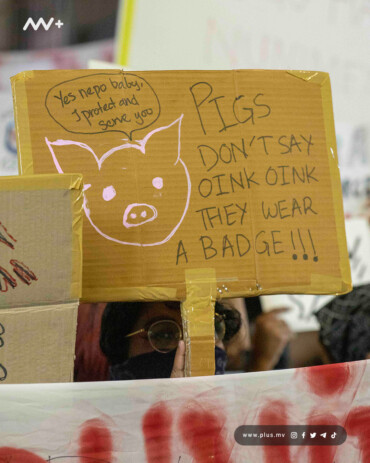 MV+
Yes nepo baby,
I protect and
serve you
PIGS
DON'T SAY
OINK OINK
THEY WEAR
A BADGE!!!
www.plus.mv